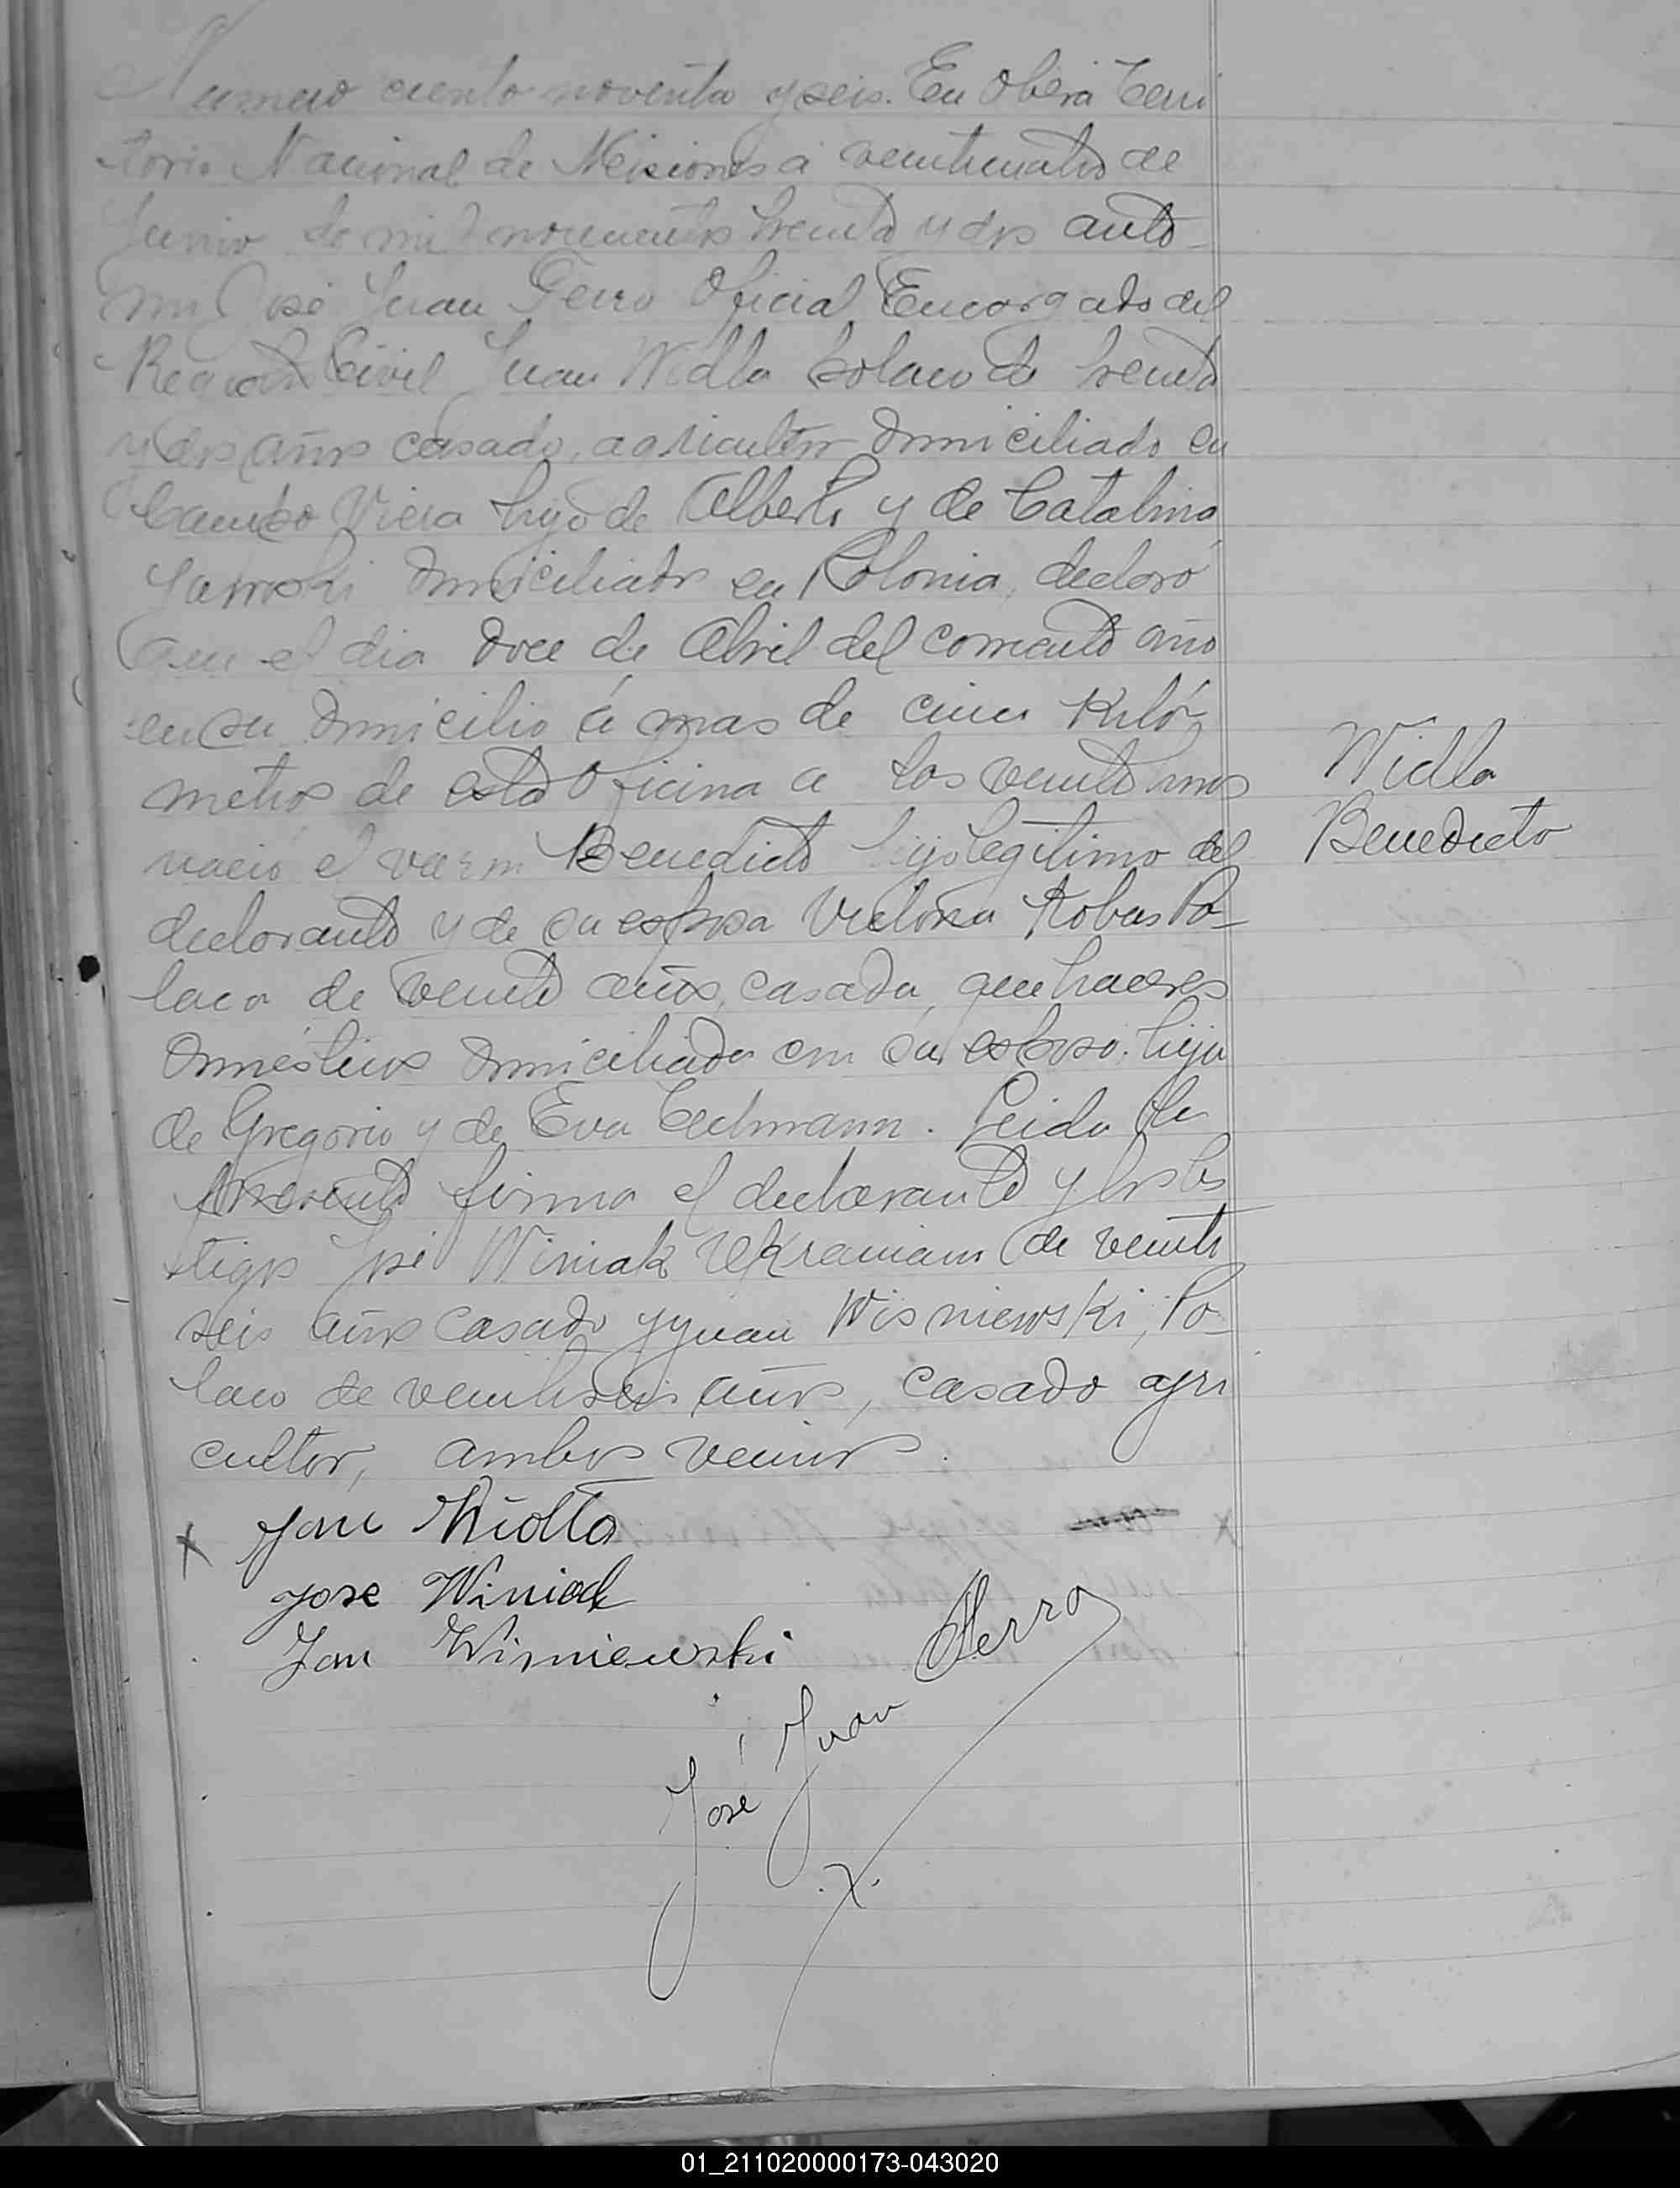 Numero ciento noventa y seis. En Oberá Terri
torio Nacional de Misiones a veinticuatro de
Junio de mil novecientos treinta y dos ante
mi José Juan Ferro Oficial Encargado del
Registro Civil Juan Widla polaco de treinta
y dos años casado, agricultor domiciliado en
Campo Viera hijo de Alberto y de Catalina
domiciliados en Polonia, declaró
que el dia doce de Abril del corriente año
en su domicilio á mas de cinco Kiló-
metros de esta Oficina a las veinte nacio
el varon Benedicto hijo legitimo del
declarante y de su esposa Victoria Kobus Po-
laca de veinte años, casada, quehaceres
domésticos domiciliada con su esposo, hija
de Gregorio y de Eva. Leida la
presente firma el declarante y los tes
tigos José Winiak Ukraniano de veinti
seis años casado y Juan Wisniewski, Po-
laco de veintiseis años, casado agri
cultor, ambos vecinos.
Widla
Benedicto
x Jan
Jose Winiak
Jan Wisniewski
José Juan Ferro
01_211020000173-043020